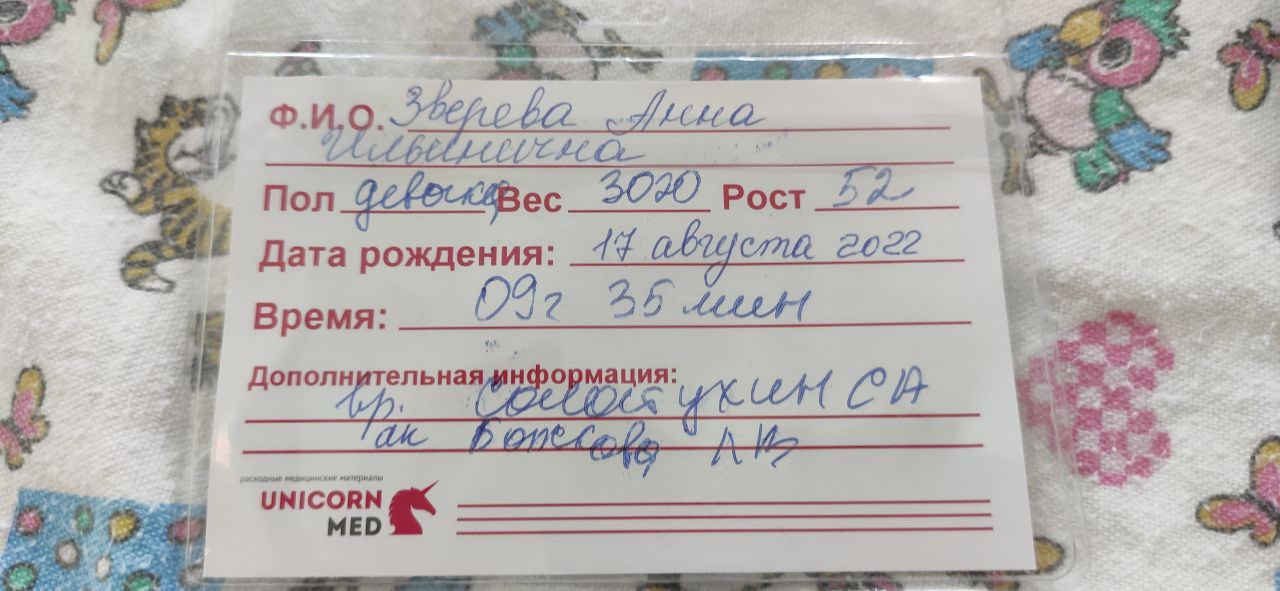 Ф.И.О. Зверева Анна
Ильинична
Пол девочка Вес 3020 Рост 52
Дата рождения: 17 августа 2022
Время: 09г 35 мин
Дополнительная информация:
вр. СА
ак Божкова ЛВ
расходные медицинские материалы
UNICORN
MED